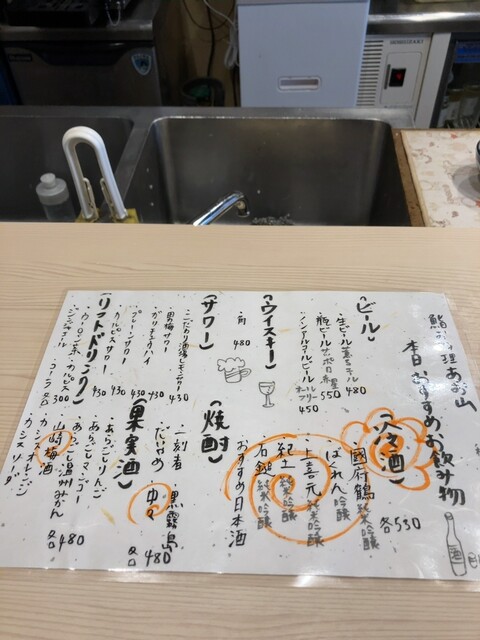 鮨 理 あお山
本日おすすめお飲み物
【ビール】
・生ビール 黒ラベル 480
・瓶ビール サッポロ赤星 550
・ノンアルコールビール オールフリー 450
【ウイスキー】
・角 480
【サワー】
・こだわり酒場レモンサワー 430
・男梅サワー 430
・ガリチュウハイ 430
・プレーンサワー 430
・カルピスサワー 430
【ソフトドリンク】
・ウーロン茶 ・カルピス
・ジンジャエール ・コーラ 各300
【冷酒】
・國府鶴 純米吟醸
・ばれん 吟醸
・上喜元 純米吟醸
・紀土 純米吟醸
・石鎚 純米吟醸
おすすめ日本酒
各550
【焼酎】
・一刻者 ・黒霧島
・だいやめ ・中々
各480
【果実酒】
・あらごしりんご
・あらごしマンゴー
・あらごし温州みかん
・山崎梅酒
・カシスオレンジ
・カシスソーダ
各480
酒
HOSHIZAKI